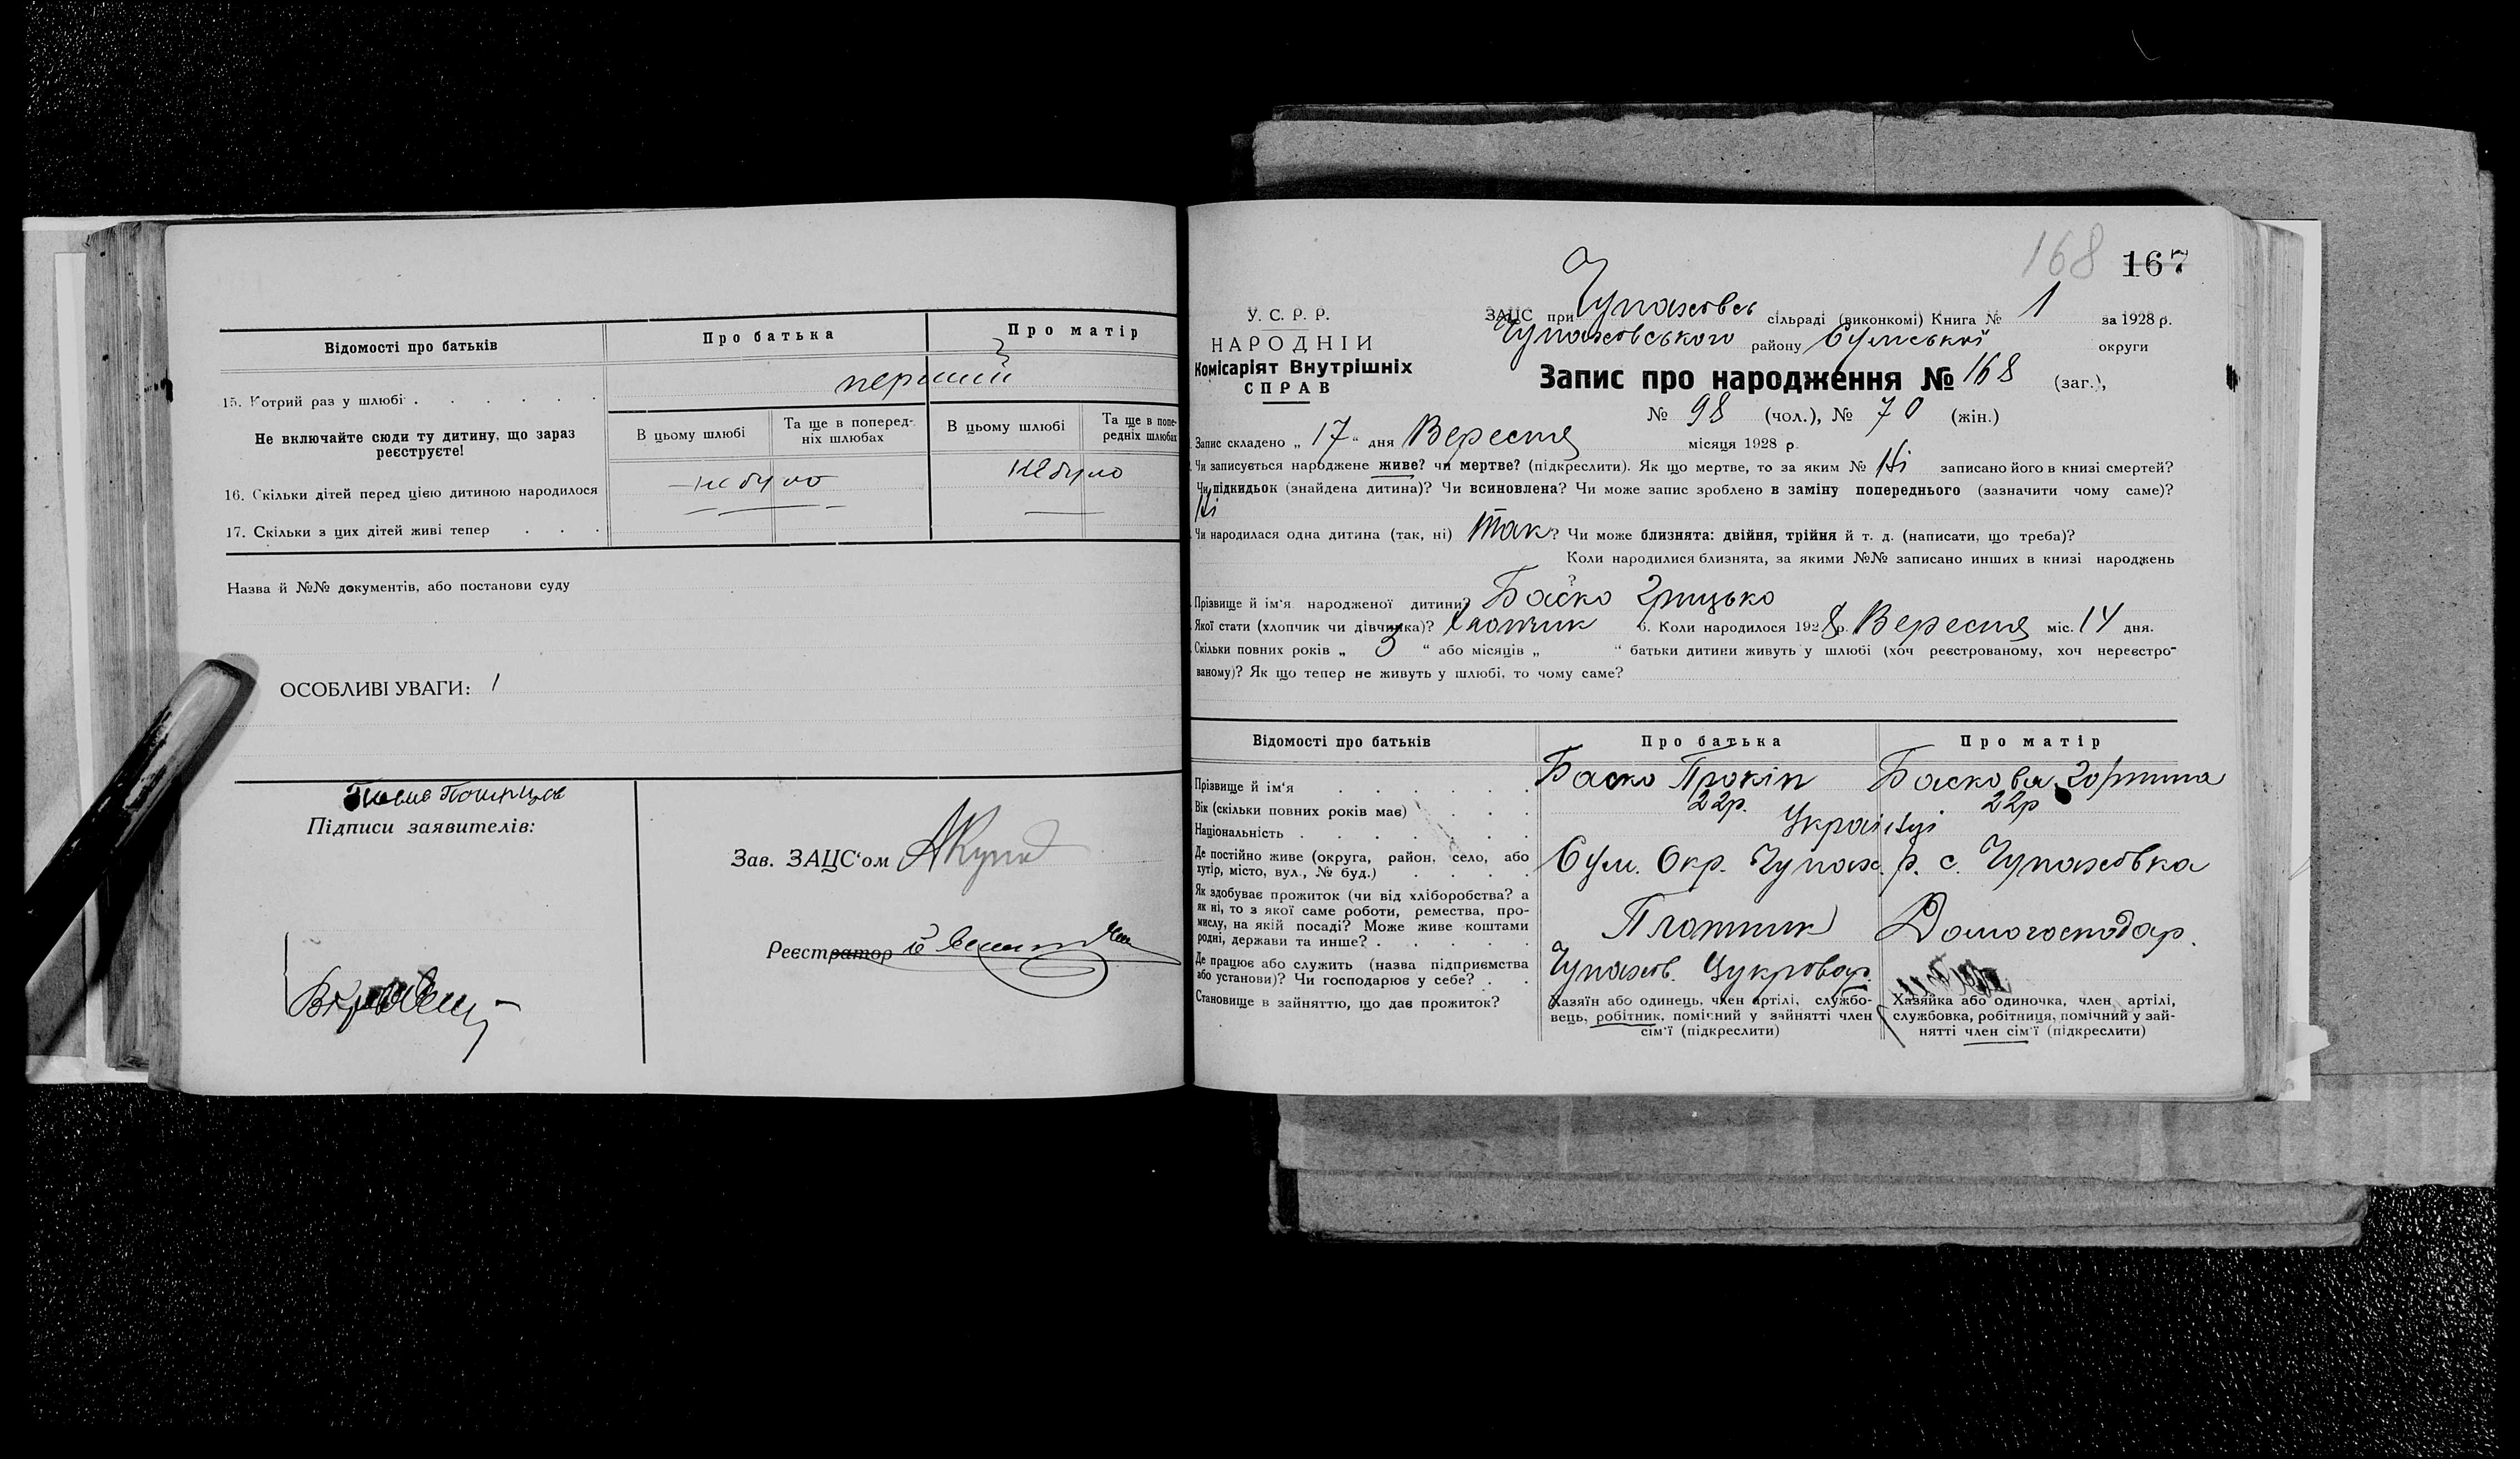 Відомості про батьків
Про батька
Про матір
15. Котрий раз у шлюбі
перший
Не включайте сюди ту дитину, що зараз реєструєте!
В цьому шлюбі
Та ще в поперед-
ніх шлюбах
В цьому шлюбі
Та ще в попе-
редніх шлюбах
16. Скільки дітей перед цією дитиною народилося
не було
не було
17. Скільки з цих дітей живі тепер
Назва й №№ документів, або постанови суду
ОСОБЛИВІ УВАГИ:
Підписи заявителів:
Зав. ЗАЦС'ом
Реєстратор
168 167
У. С. Р. Р.
НАРОДНІЙ
Комісаріят Внутрішніх
СПРАВ
ЗАЦС при Чупаховсь сільраді (виконкомі) Книга № 1 за 1928 р.
Чупаховського району Сумської округи
Запис про народження № 168 (заг.),
№ 98 (чол.), № 70 (жін.)
Запис складено „ 17 “ дня Вересня місяця 1928 р.
Чи записується народжене живе? чи мертве? (підкреслити). Як що мертве, то за яким № Ні записано його в книзі смертей?
Чи підкидьок (знайдена дитина)? Чи всиновлена? Чи може запис зроблено в заміну попереднього (зазначити чому саме)?
Ні
Чи народилася одна дитина (так, ні) Так? Чи може близнята: двійня, трійня й т. д. (написати, що треба)?
Коли народилися близнята, за якими №№ записано инших в книзі народжень
?
Прізвище й ім'я народженої дитини? Баско Грицько
Якої стати (хлопчик чи дівчинка)? Хлопчик 6. Коли народилося 1928 р. Вересня міс. 14 дня.
Скільки повних років „ 3 “ або місяців „ “ батьки дитини живуть у шлюбі (хоч реєстрованому, хоч нереєстро-
ваному)? Як що тепер не живуть у шлюбі, то чому саме?
Відомості про батьків
Про батька
Про матір
Прізвище й ім'я
Баско Прокіп
Баскова Горпина
Вік (скільки повних років має)
22р.
22р
Національність
Українці
Де постійно живе (округа, район, село, або
хутір, місто, вул., № буд.)
Сум. Окр. Чупах. р. с. Чупахівка
Як здобуває прожиток (чи від хліборобства? а
як ні, то з якої саме роботи, ремества, про-
мислу, на якій посаді? Може живе коштами
родні, держави та инше?
Плотник
Домогосподар.
Де працює або служить (назва підприємства
або установи)? Чи господарює у себе?
Чупахов. Цукровар.
Становище в зайняттю, що дає прожиток?
Хазяїн або одинець, член артілі, службо-
вець, робітник, помічний у зайнятті член
сім'ї (підкреслити)
Хазяйка або одиночка, член артілі,
службовка, робітниця, помічний у зай-
нятті член сім'ї (підкреслити)